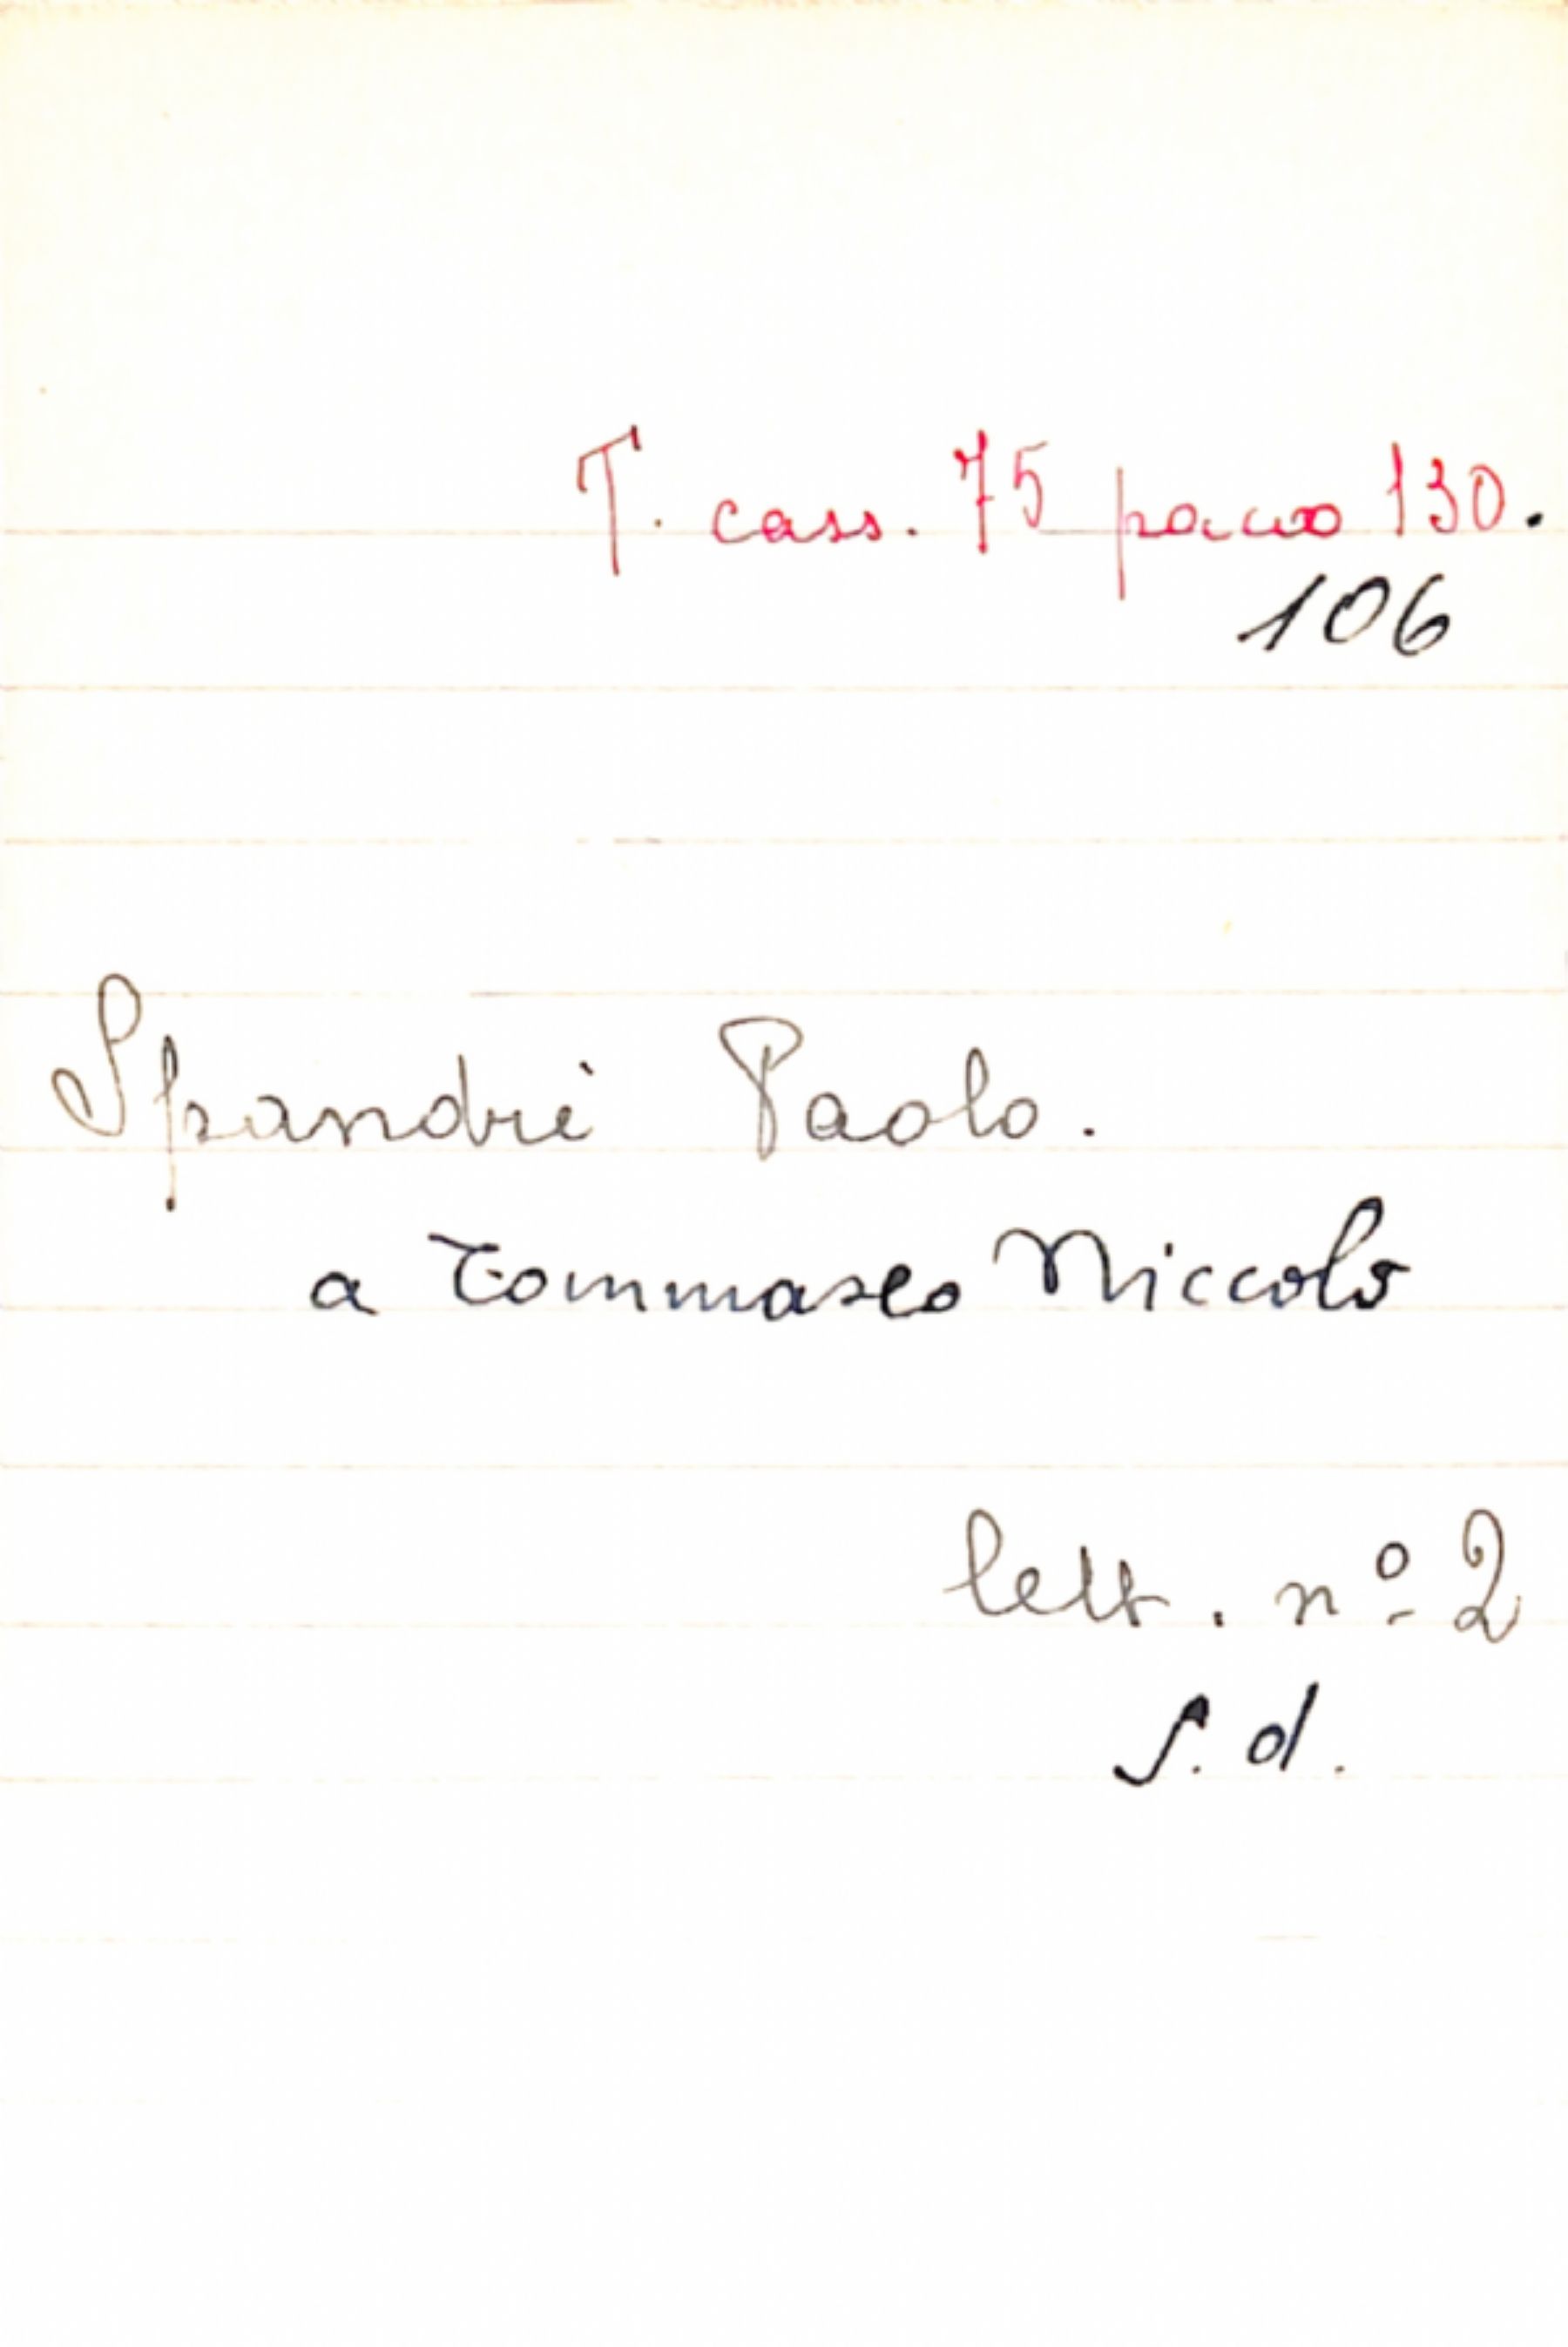 T. cass. 75 pacco 130.
106
Spandrè Paolo.
a Tommaseo Niccolò
lett. nº 2
s. d.